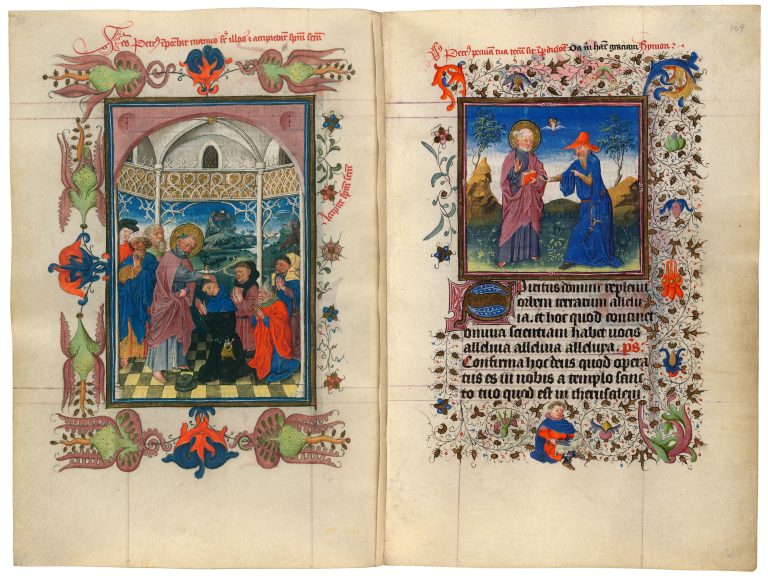 Petr' manus sr illos accipiebāt spm̄ scm̄
Accipite spm̄ scm̄
Petr' tua tecū sit Da hanc graciam Symon
Spiritus domini repleuit
orbem terrarum allelu
ia. et hoc quod continet
omnia scientiam habet uocis
alleluia alleluia alleluya. ps.
Confirma hoc deus quod opera
tus es in nobis a templo sanc
to tuo quod est in iherusalem